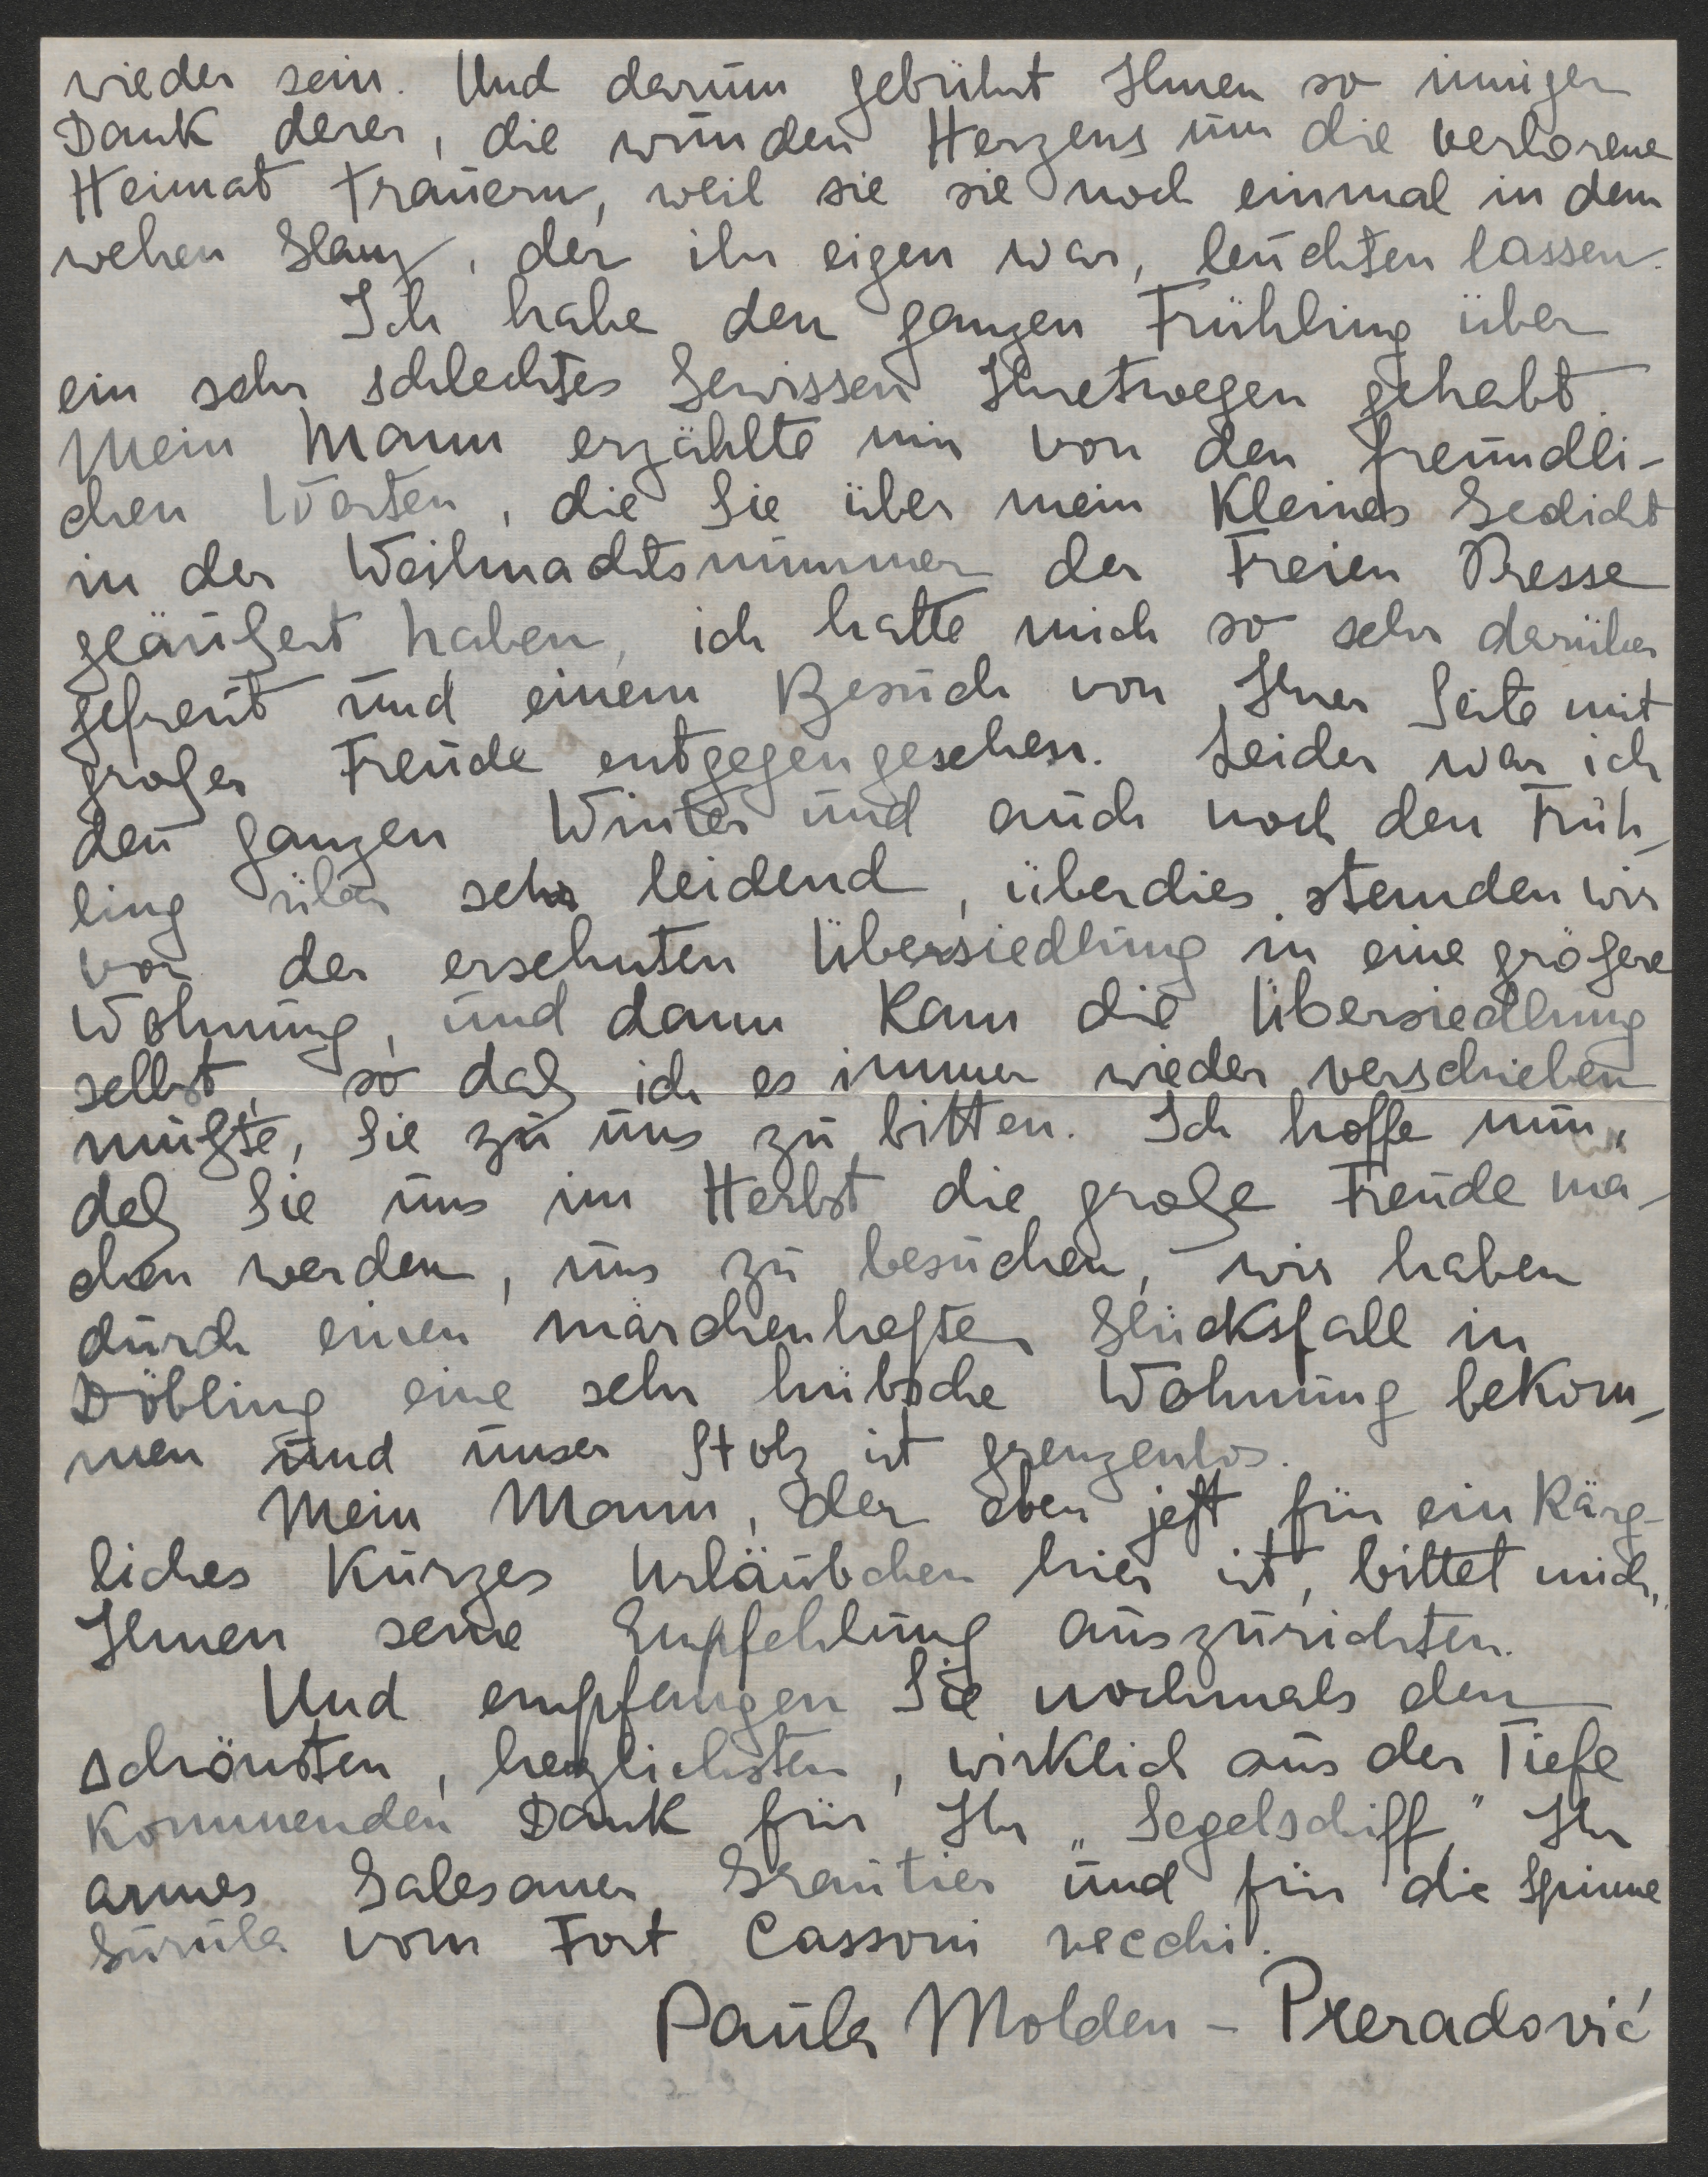 wieder sein. Und darum gebührt Ihnen so inniger
Dank derer, die wunden Herzens um die verlorene
Heimat trauern, weil sie sie noch einmal in dem
wehen Glanz, der ihr eigen war, leuchten lassen.
Ich habe den ganzen Frühling über
ein sehr schlechtes Gewissen Ihretwegen gehabt.
Mein Mann erzählte mir von den freundli-
chen Worten, die Sie über mein kleines Gedicht
in der Weihnachtsnummer der Freien Presse
geäußert haben, ich hatte mich so sehr darüber
gefreut und einem Besuch von Ihrer Seite mit
großer Freude entgegengesehen. Leider war ich
den ganzen Winter und auch noch den Früh-
ling über sehr leidend, überdies standen wir
vor der ersehnten Übersiedlung in eine größere
Wohnung, und dann kam die Übersiedlung
selbst, so daß ich es immer wieder verschieben
mußte, Sie zu uns zu bitten. Ich hoffe nun,
daß Sie uns im Herbst die große Freude ma-
chen werden, uns zu besuchen, wir haben
durch einen märchenhaften Glücksfall in
Döbling eine sehr hübsche Wohnung bekom-
men und unser Stolz ist grenzenlos.
Mein Mann, der eben jetzt für ein kärg-
liches kurzes Urläubchen hier ist, bittet mich,
Ihnen seine Empfehlung auszurichten.
Und empfangen Sie nochmals den
schönsten, herzlichsten, wirklich aus der Tiefe
kommenden Dank für Ihr „Segelschiff," Ihr
armes Salesaner Grautier und für die Spinne
vom Fort Cassoni vecchi.
Paula Molden – Preradović